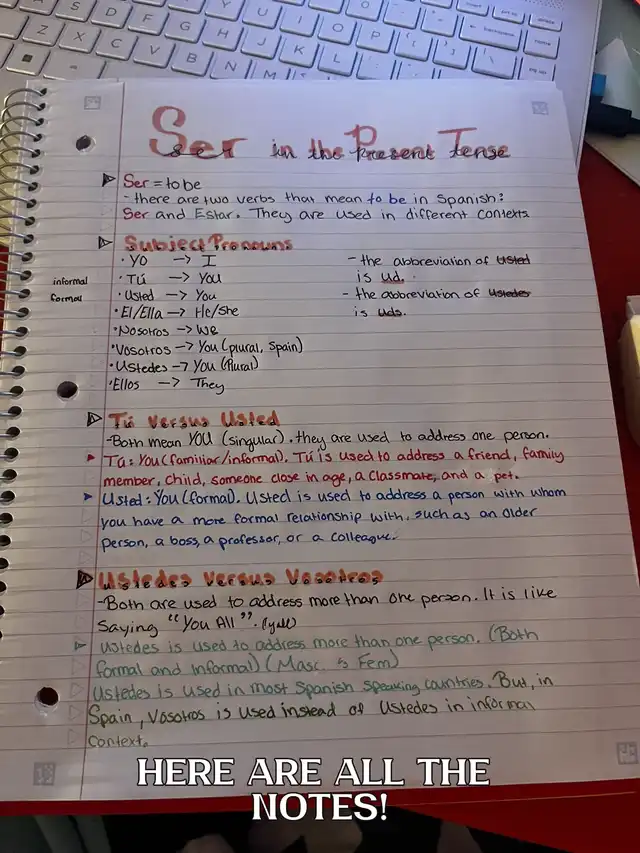 Ser in the Present Tense
Ser = to be
- there are two verbs that mean to be in Spanish:
Ser and Estar. They are used in different contexts
Subject Pronouns
· Yo → I
- the abbreviation of usted
informal
· Tú → You
is ud.
formal
· Usted → You
- the abbreviation of ustedes
· El/Ella → He/She
is uds.
· Nosotros → We
· Vosotros → You (plural, Spain)
· Ustedes → You (Plural)
· Ellos → They
Tú versus Usted
- Both mean YOU (singular). they are used to address one person.
Tú: You (familiar/informal). Tú is used to address a friend, family
member, child, someone close in age, a classmate, and a pet.
Usted: You (formal). Usted is used to address a person with whom
you have a more formal relationship with, such as an older
person, a boss, a professor, or a colleague.
Ustedes versus Vosotros
- Both are used to address more than one person. It is like
saying "You All". (y'all)
Ustedes is used to address more than one person. (Both
formal and informal) (Masc. & Fem)
Ustedes is used in most Spanish speaking countries. But, in
Spain, Vosotros is used instead of Ustedes in informal
context.
HERE ARE ALL THE
NOTES!